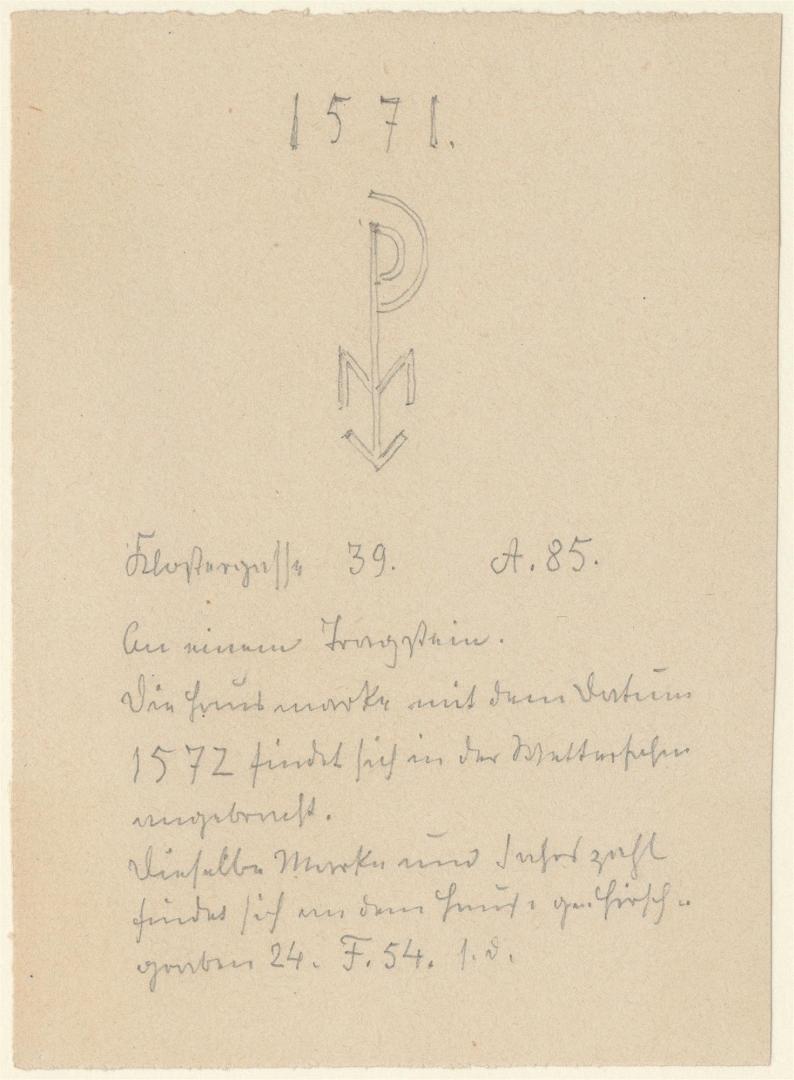 1571.
P
M
Klostergasse 39. A. 85.
An einem Tragstein.
Die Hausmarke mit dem Datum
1572 findet sich in der Wetterfahne
angebracht.
Dieselbe Marke und Jahrszahl
findet sich an dem Hause gr. Hirsch-
graben 24. F. 54. s. d.